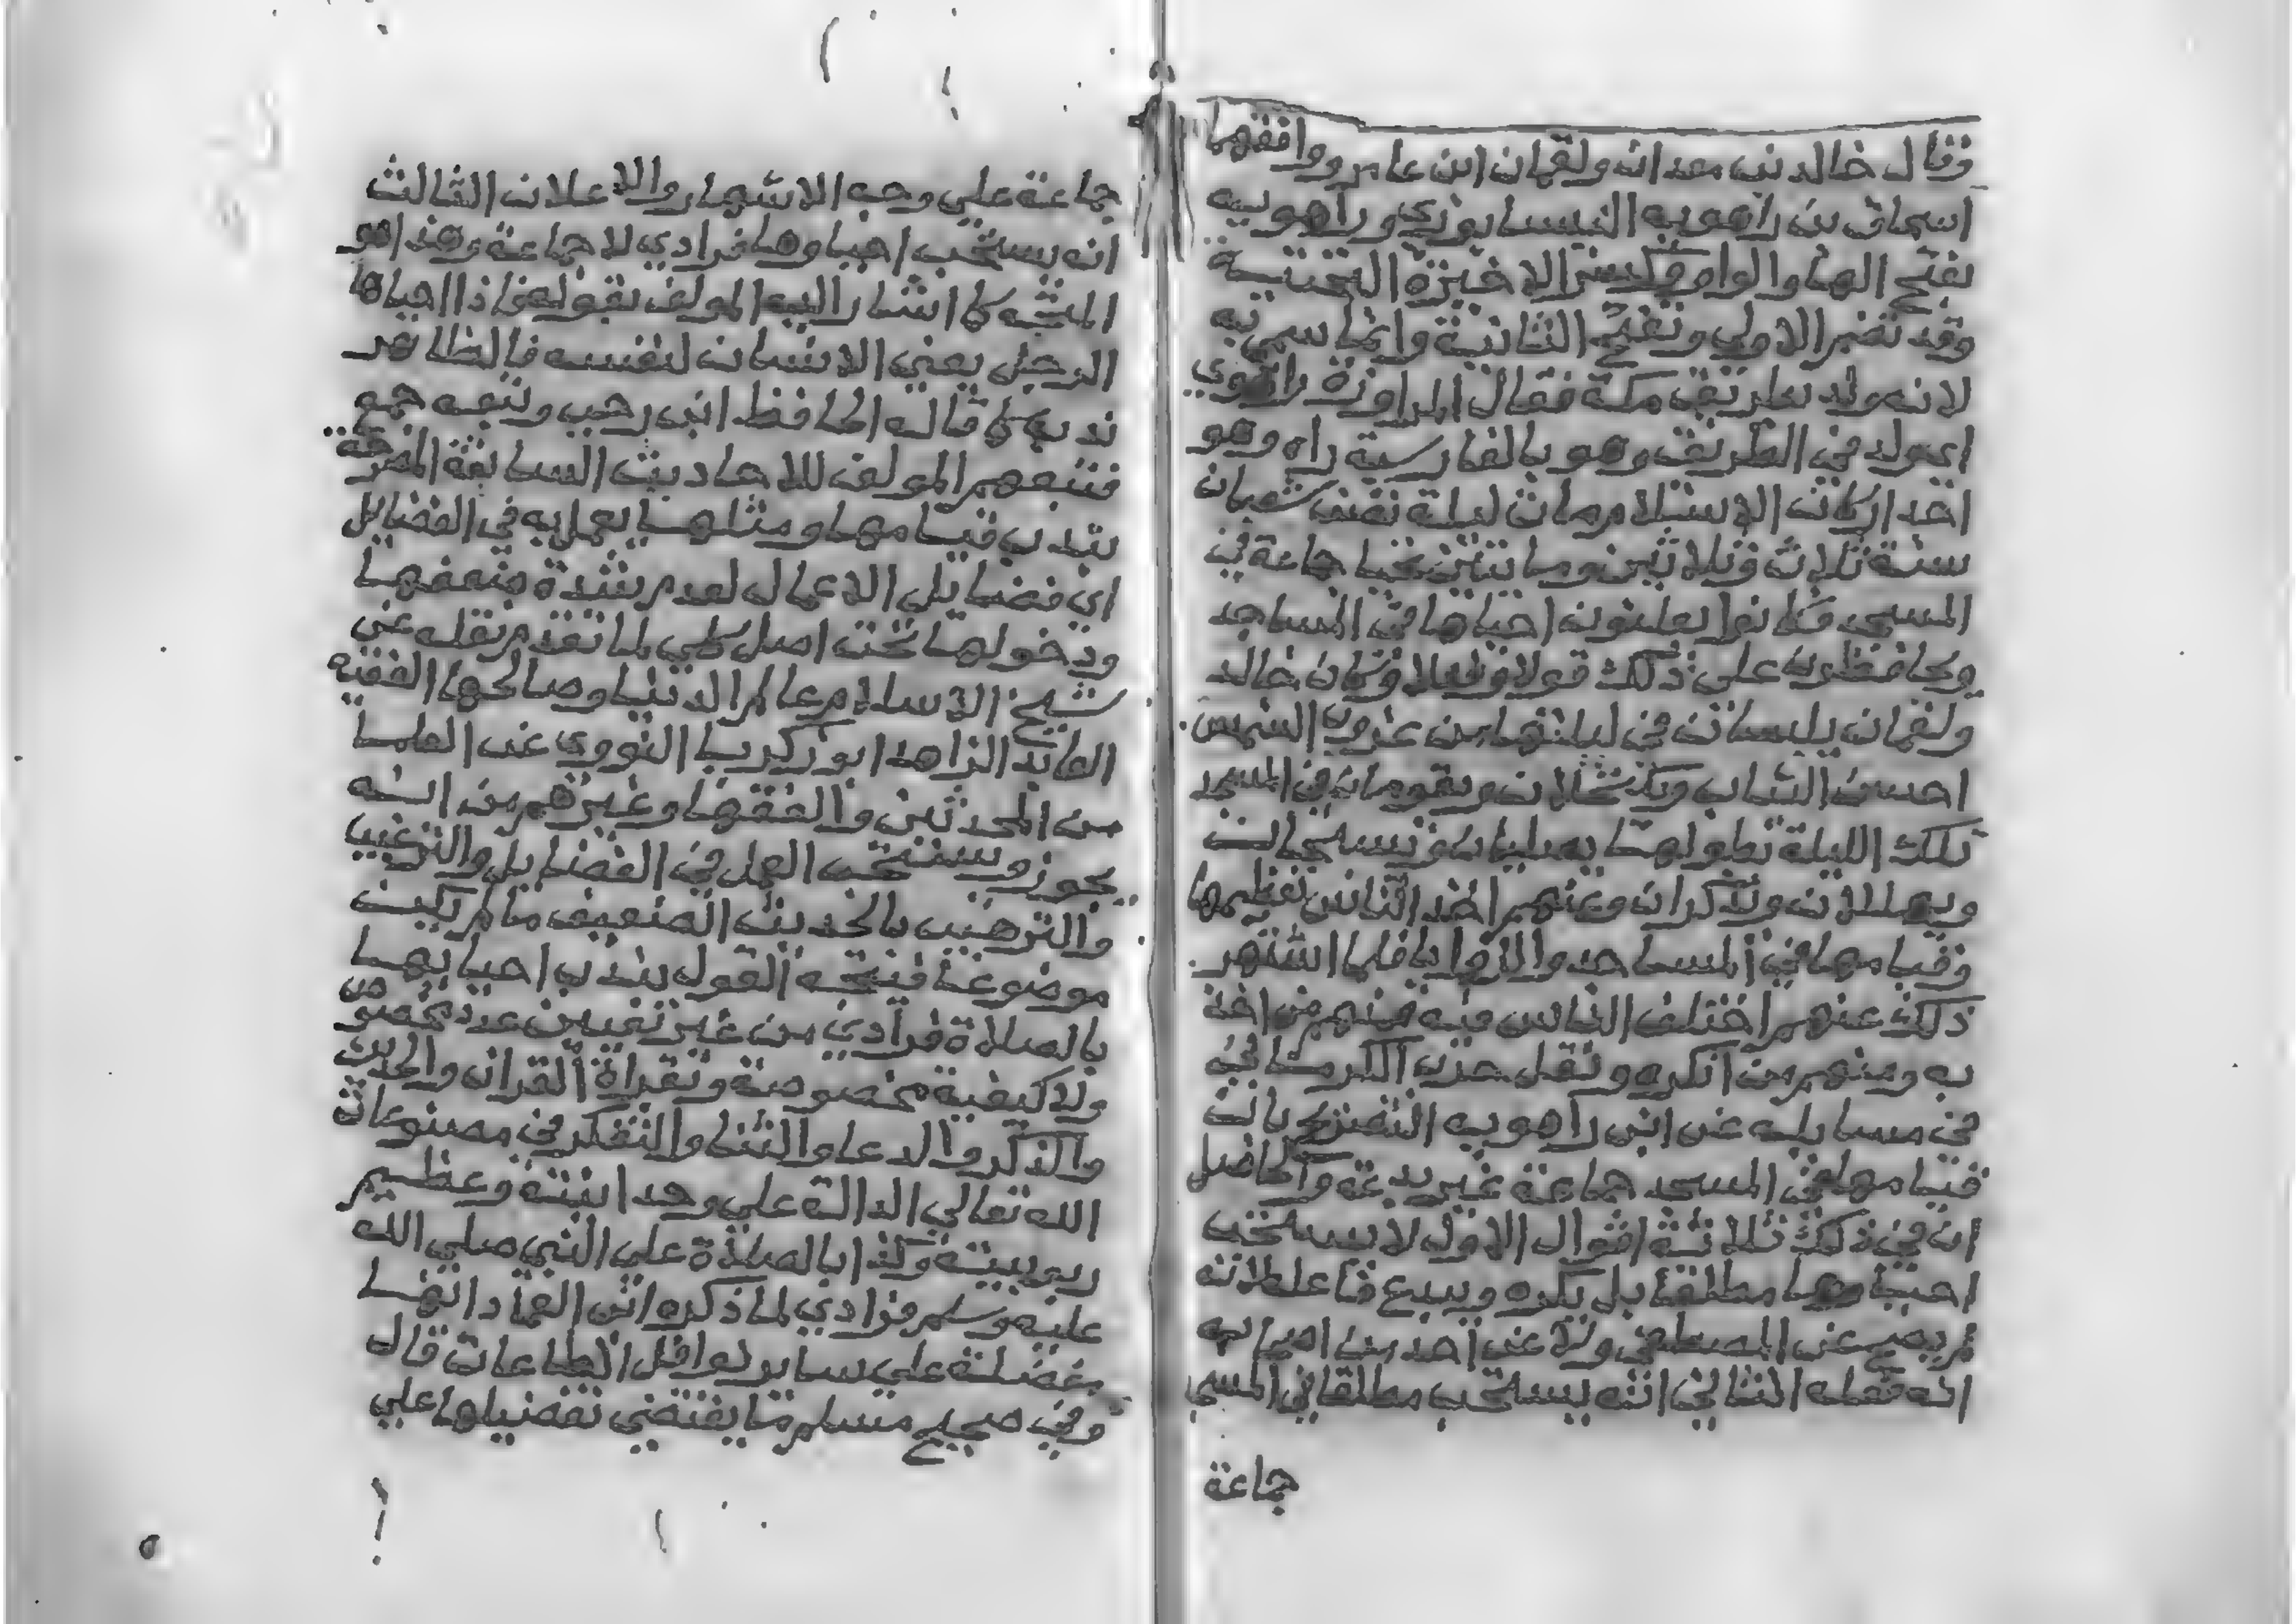 وقال خالد بن معدان ولقمان ابن عامر ووافقهما
اسحاق بن راهويه النيسابوري وراهويه
بفتح الها والواو وكسر الاخيرة التحتية
وقد تضم الاولي وتفتح الثانية وانما سمي به
لانه ولد بطريق مكة فقال المراوزة راهوي
اي ولد في الطريق وهو بالفارسية راه وهو
احد اركان الاسلام مات ليلة نصف شعبان
سنة ثلاث وثلاثين وماتين تحيا جماعة في
المسجد فكانوا يعلنون احياها في المساجد
ويحافظون علي ذلك قولا وفعلا وكان خالد
ولقمان يلبسان في ليلتها من غروب الشمس
احسن الثياب ويكتحلان ويقومان في المسجد
تلك الليلة بطولها يصليان ويسبحان
ويهللان ويذكران وعنهم اخذ الناس تعظيمها
وقيامها في المساجد والزوايا فلما اشتهر
ذلك عنهم اختلف الناس فيه فمنهم من اخذ
به ومنهم من انكره ونقل حرب الكرماني
في مسايله عن ابن راهويه التصريح بان
قيامها في المسجد جماعة غير بدعة والحاصل
ان في ذلك ثلاثة اقوال الاول لا يستحب
احياوها مطلقا بل يكره ويبدع فاعله لانه
لم يصح عن المصطفي ولا عن احد من اصحابه
انه فعله الثاني انه يستحب مطلقا في المسجد
جماعة
جماعة علي وجه الاشهار والاعلان الثالث
انه يستحب احياوها فرادي لا جماعة وهذا هو
المتجه كما اشار اليه المولف بقوله فاذا احياها
الرجل يعني الانسان لنفسه فالظاهر
ندبه كما قاله الحافظ ابن رجب وتبعه جمع
فتبعهم المولف للاحاديث السابقة المصرحة
بندب قيامها ومثلها يعمل به في الفضايل
اي فضايل الاعمال لعدم شدة ضعفها
ودخولها تحت اصل كلي لما تقدم نقله عن
شيخ الاسلام عالم الدنيا وصالحها الفقيه
العابد الزاهد ابو زكريا النووي عن العلما
من المحدثين والفقها وغيرهم من انه
يجوز ويستحب العمل في الفضايل والترغيب
والترهيب بالحديث الضعيف ما لم يكن
موضوعا فيتجه القول بندب احيايها
بالصلاة فرادي من غير تعيين عدد مخصوص
ولا كيفية مخصوصة وبقراة القران والحديث
والذكر والدعا والثنا والتفكر في مصنوعات
الله تعالي الدالة علي وحدانيته وعظيم
ربوبيته وكذا بالصلاة علي النبي صلي الله
عليه وسلم فرادي لما ذكره ابن العماد انها
مفضلة علي ساير نوافل الطاعات قال
وفي صحيح مسلم ما يقتضي تفضيلها علي